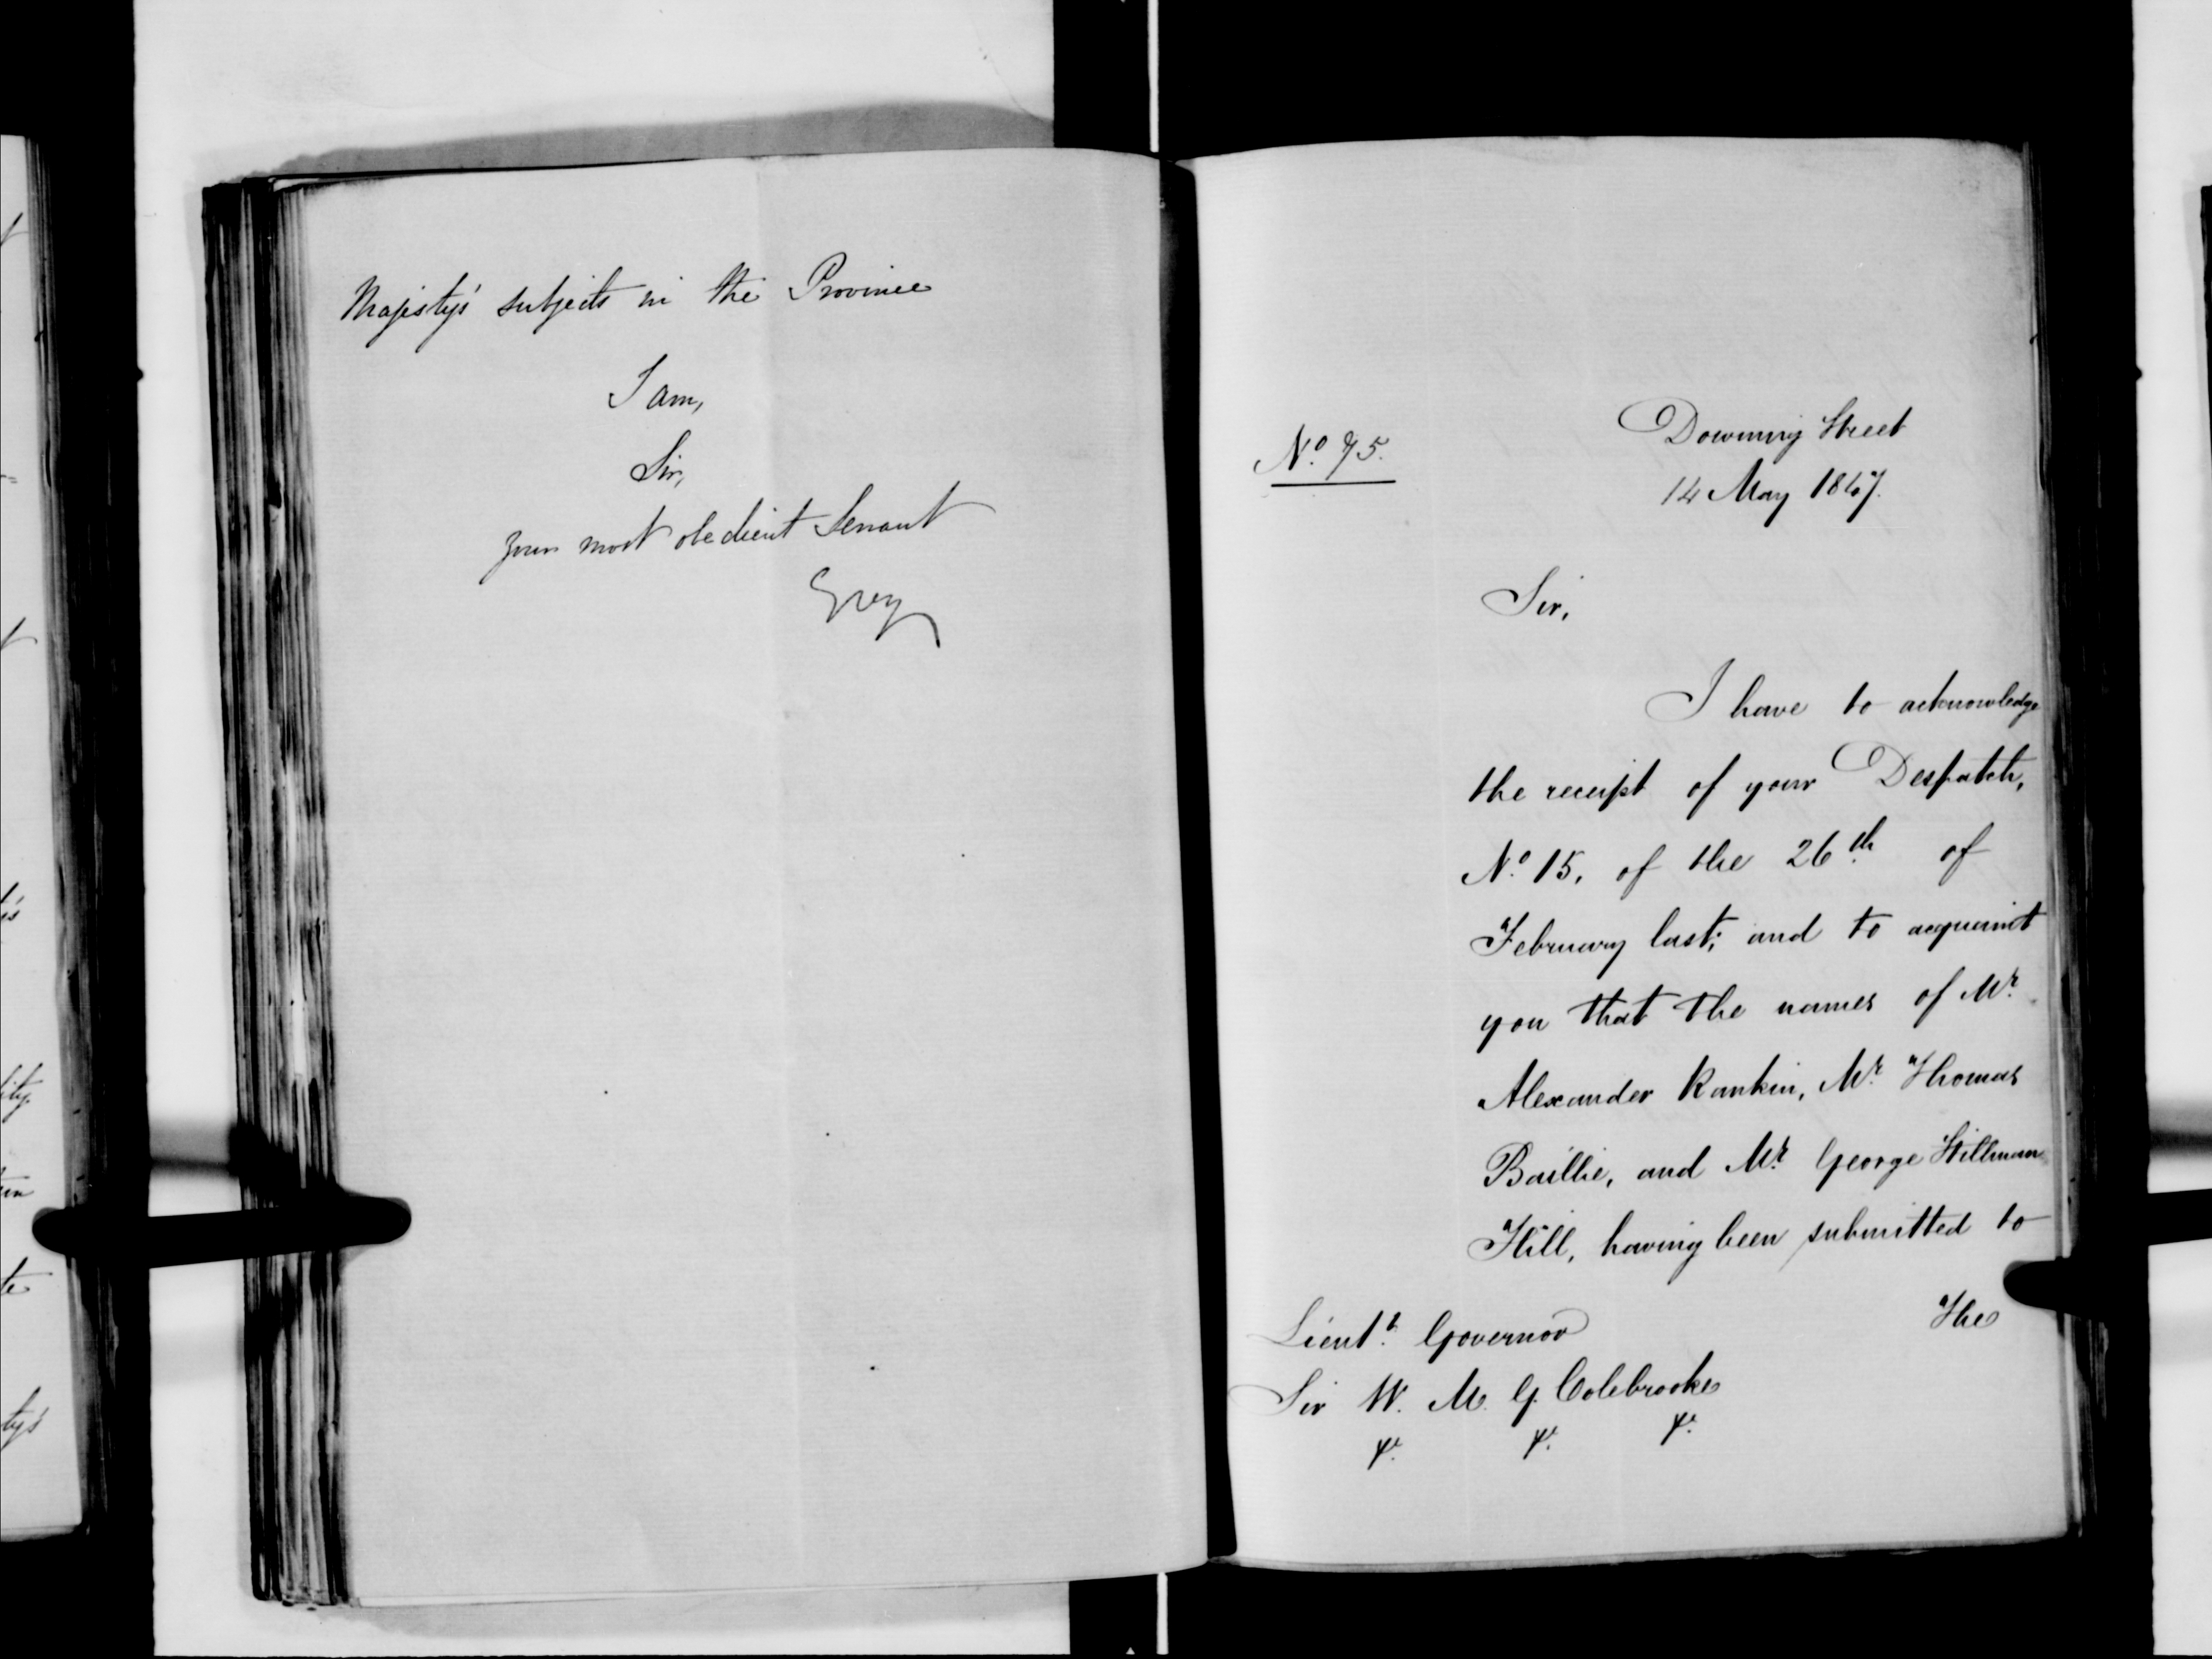 Majesty's subjects in the Province
I am,
Sir,
Your most obedient Servant
Grey
No. 75.
Downing Street
14 May 1847.
Sir,
I have to acknowledge
the receipt of your Despatch,
No. 15, of the 26th of
February last; and to acquaint
you that the names of Mr.
Alexander Rankin, Mr. Thomas
Baillie, and Mr. George Stillman
Hill, having been submitted to
The
Lieut. Governor
Sir W. M. G. Colebrooke
&c. &c. &c.